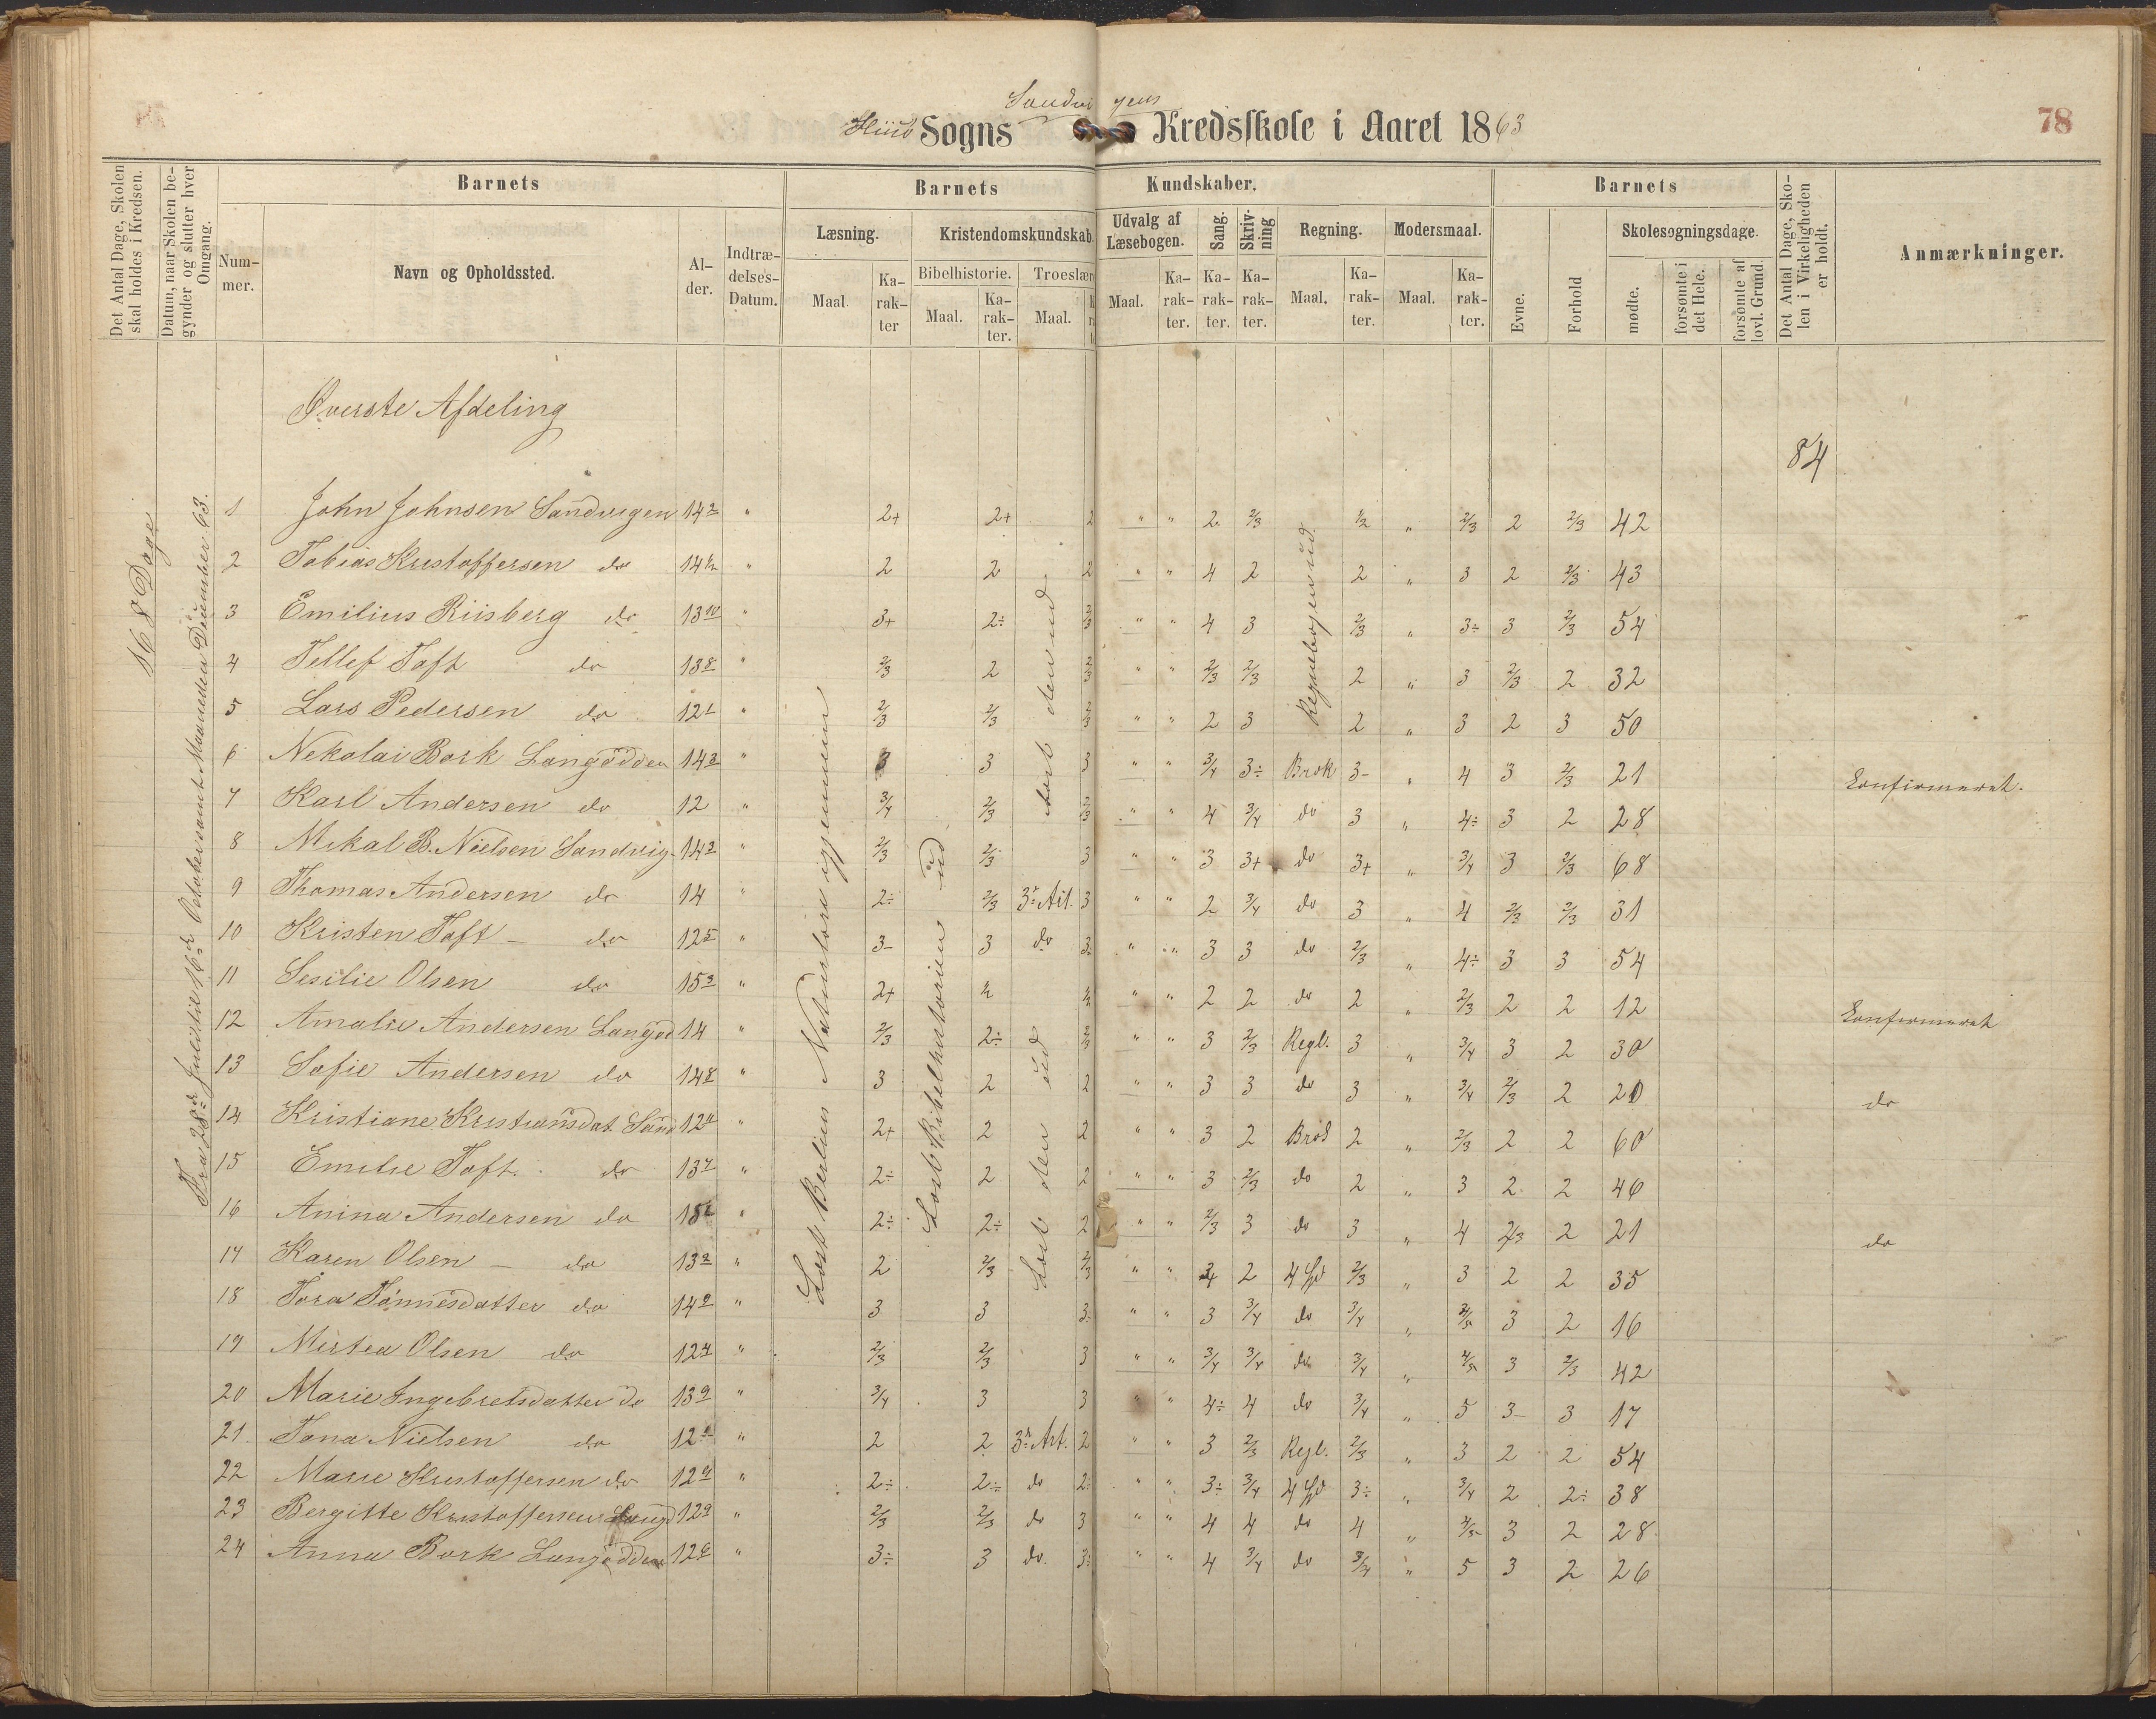 78
Sandvigens
Hiisö Sogns Kredsskole i Aaret 1863
Det Antal Dage, Skolen skal holdes i Kredsen.
Datum, naar Skolen begynder og slutter hver Omgang.
Barnets
Nummer.
Navn og Opholdssted.
Alder.
Indtrædelses-Datum.
Barnets Kundskaber.
Læsning.
Maal.
Karakter
Kristendomskundskab.
Bibelhistorie.
Maal.
Karakter.
Troeslære
Maal.
Udvalg af Læsebogen.
Maal.
Karakter.
Sang.
Karakter.
Skrivning
Karakter.
Regning.
Maal.
Karakter.
Modersmaal.
Maal.
Karakter.
Barnets
Evne.
Forhold
Skolesøgningsdage.
mødte.
forsømte i det Hele.
forsømte af lovl. Grund.
Det Antal Dage, Skolen i Virkeligheden er holdt.
Anmærkninger.
168 Dage
Fra 28de Juli til 16de Octobersamt Maaneden December 63.
Øverste Afdeling
84
Læst Berlins Naturlære igjennem
Læst Bibelhistorien ud
Læst den ud
Læst den ud
Regnebogen ud
1 John Johnsen Sandvigen 14 2 " 2+ 2+ 2 " " 2 2/3 1/2 " 2/3 2 2/3 42
2 Tobias Kristoffersen do 14 1/2 " 2 2 2 " " 4 2 2 " 3 2 2/3 43
3 Emilius Riisberg do 13 10 " 3+ 2÷ 2/3 " " 4 3 2/3 " 3÷ 3 2/3 54
4 Tellef Toft do 13 8 " 2/3 2 2/3 " " 2/3 2/3 2 " 3 2/3 2 32
5 Lars Pedersen do 12 1 " 2/3 2/3 2/3 " " 2 3 2 " 3 2 3 50
6 Nekolai Bork Langodden 14 2 " 3 3 3 " " 3/4 3÷ Brok 3- " 4 3 2/3 21 Konfirmeret.
7 Karl Andersen do 12 " 3/4 2/3 2/3 " " 4 3/4 do 3 " 4÷ 3 2 28
8 Mikal B. Nielsen Sandvig 14 2 " 2/3 2/3 3 " " 3 3+ do 3+ " 3/4 3 2/3 68
9 Thomas Andersen do 14 " 2÷ 2/3 3die Art. 3 " " 2 3/4 do 3 " 4 2/3 2/3 31
10 Kristen Toft - do 12 5 " 3- 3 do 3÷ " " 3 3 do 2/3 " 4÷ 3 3 54
11 Sesilie Olsen do 15 3 " 2+ 1/2 1/2 " " 2 2 do 2 " 2/3 2 2 12 Konfirmeret
12 Amalie Andersen Langod 14 " 2/3 2÷ 2/3 " " 3 2/3 Regb. 3 " 3/4 3 2 30
13 Sofie Andersen do 14 8 " 3 2 2 " " 3 3 do 3 " 3/4 2/3 2 20 do
14 Kristiane Kristiansdat. Sand 12 11 " 2+ 2 2 " " 3 2 Brok 2 " 2/3 2 2 60
15 Emilie Toft. do 13 7 " 2÷ 2 2 " " 3 2/3 do 2 " 3 2 2 46
16 Anina Andersen do 15 2 " 2÷ 2÷ 2 " " 2/3 3 do 3 " 4 2/3 2 21 do
17 Karen Olsen - do 13 2 " 2 2/3 2/3 " " 3/4 2 4 Sp 2/3 " 3 2 2 35
18 Tora Tønnesdatter do 14 2 " 3 3 3÷ " " 3 3/4 do 3/4 " 4/5 3 2 16
19 Mirtea Olsen do 12 4 " 2/3 2/3 3 " " 3/4 3/4 do 3/4 " 4/5 3 2/3 42
20 Marie Ingebretsdatter do 13 9 " 3/4 3 3 " " 4÷ 4 do 3/4 " 5 3- 3 17
21 Tona Nielsen do 12 " 2 2 3die Art. 2 " " 3 2/3 Regl. 2/3 " 3 2 2 54
22 Marie Kristoffersen do 12 9 " 2÷ 2÷ do 2÷ " " 3÷ 3/4 4 Sp 3÷ " 3/4 2 2÷ 38
23 Bergitte Kristoffersen Langd 12 9 " 2/3 2/3 do 3 " " 4 4 do 4 " 4/5 3 2 28
24 Anna Bork Langodden 12 6 " 3÷ 3 do 3÷ " " 4 3/4 do 3/4 " 5 3 2 26